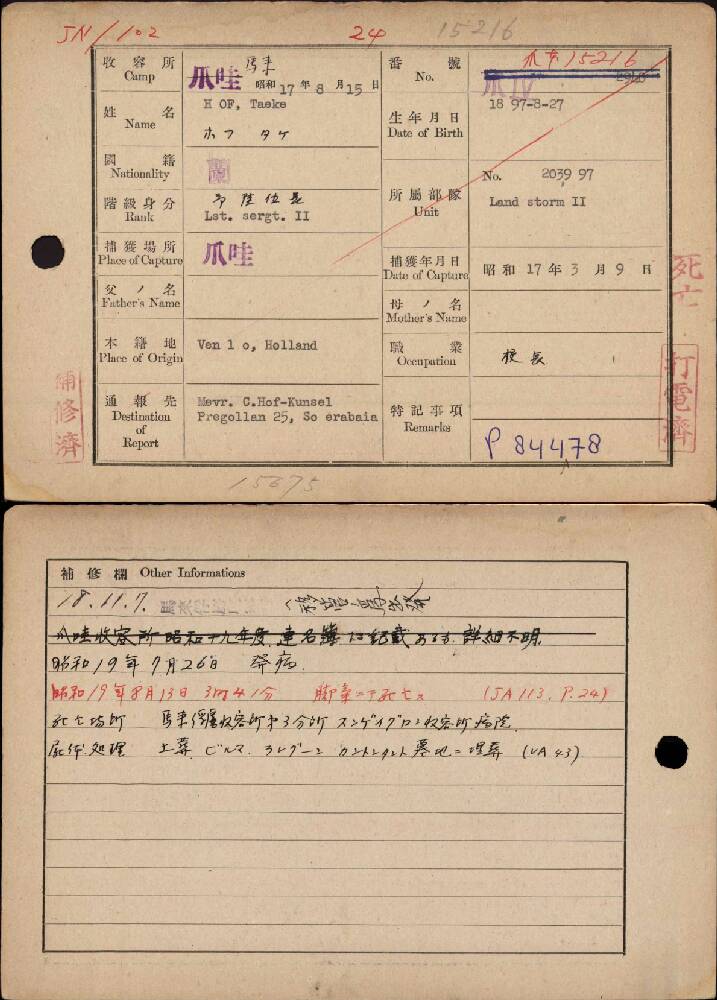 JN/102 24 15216
收容所 Camp 爪哇 馬来 昭和17年8月15日
番號 No. 爪哇15216 爪IV 2960
姓名 Name H OF, Taeke
ホフ タケ
生年月日 Date of Birth 18 97-8-27
國籍 Nationality 蘭
階級身分 Rank Lst. sergt. II
所屬部隊 Unit No. 2039 97
Land storm II
捕獲場所 Place of Capture 爪哇
捕獲年月日 Date of Capture 昭和17年3月9日
父ノ名 Father's Name
母ノ名 Mother's Name
本籍地 Place of Origin Ven l o, Holland
職業 Occupation 校長
通報先 Destination of Report Mevr. C.Hof-Kunsel
Pregollan 25, So erabaia
特記事項 Remarks P 84478
死亡
打電濟
補修濟
15675
補修欄 Other Informations
18.11.7.
爪哇收容所 昭和十九年度 連名簿 記載 詳細不明
昭和19年7月26日 発病
昭和19年8月13日 3時41分 脚気ニテ死亡ス (JA 113, P.24)
死亡場所 馬来俘虜收容所第3分所 收容所病院
屍体処理 土葬 ビルマ ラングーン カントンメント墓地ニ埋葬 (VA 43)